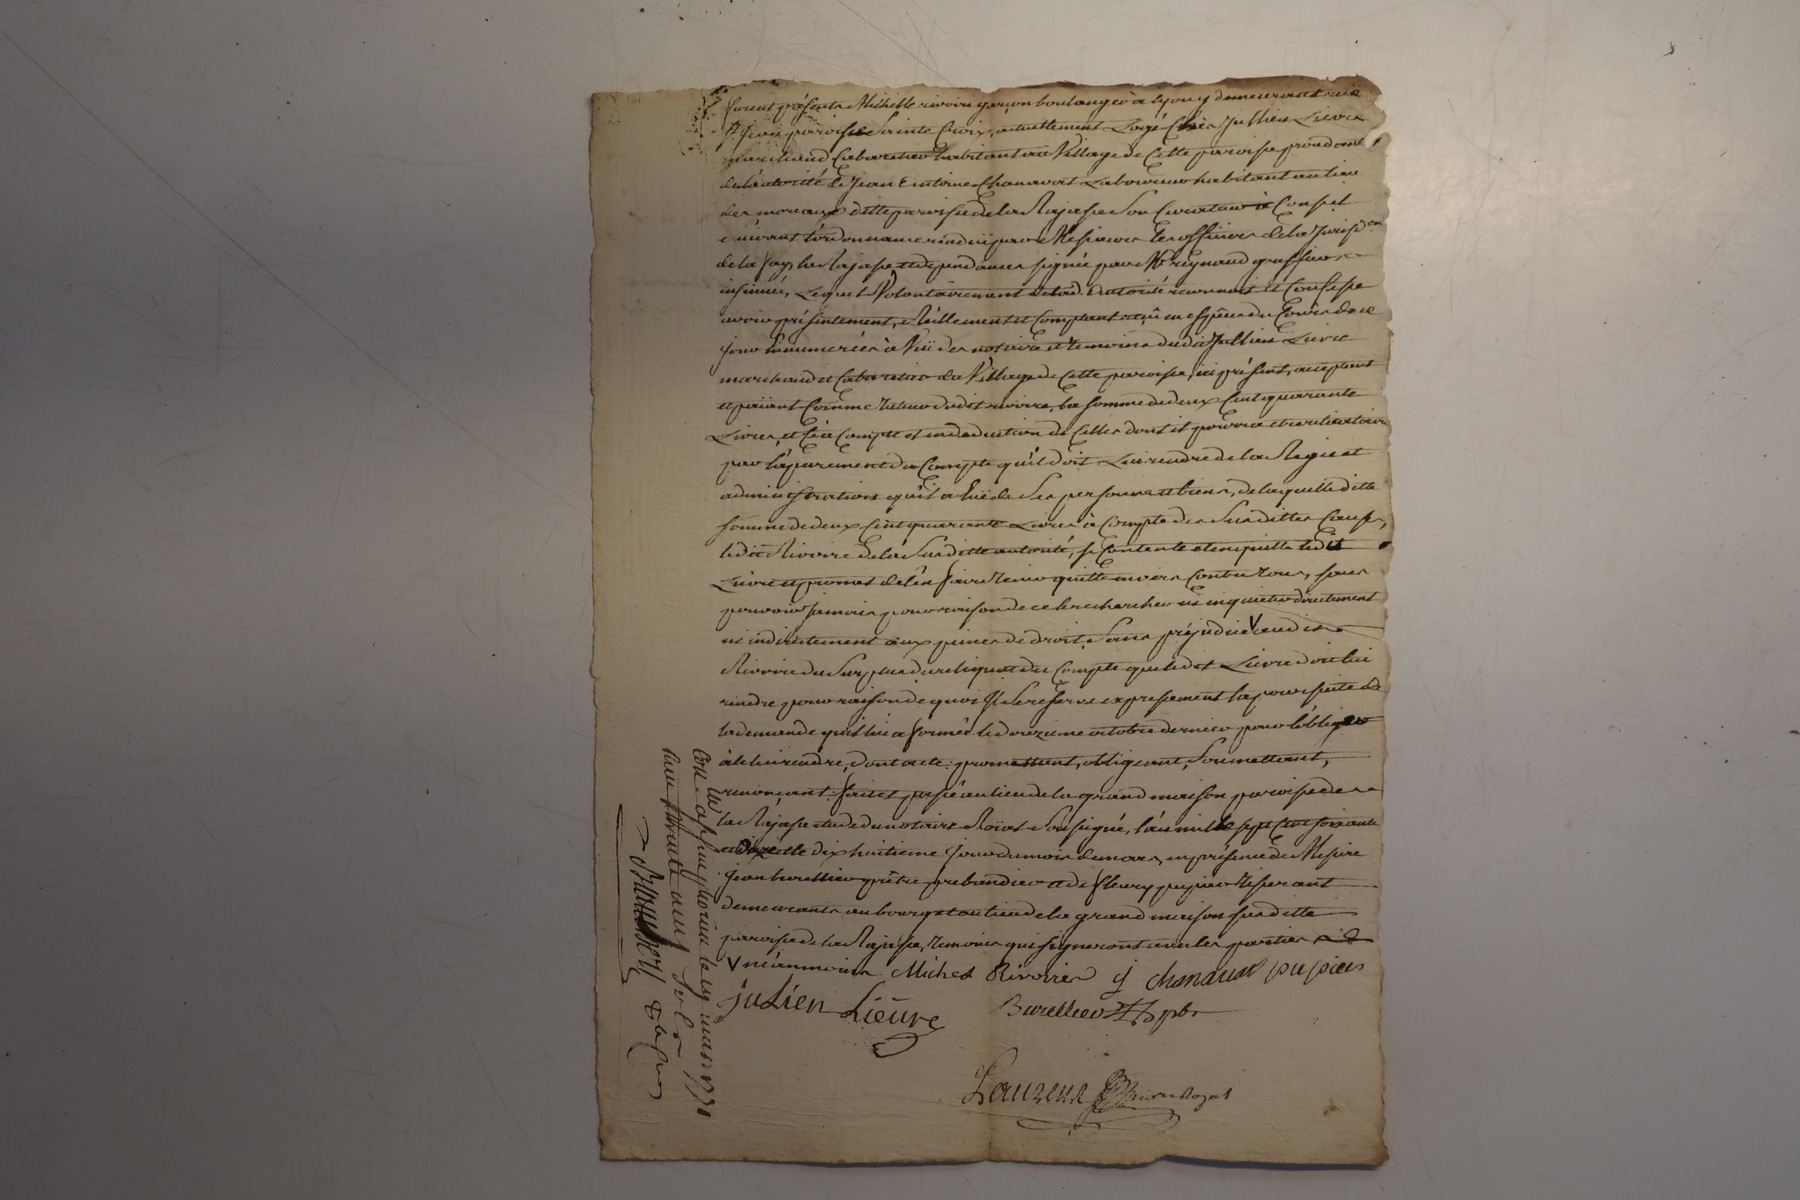 furent présents Michelle rivoire garçon boulanger à Lyon y demeurant rue
St Jean paroisse Sainte Croix, actuellement Logé Chés Jullien Lievre
marchand Cabaretier habitant au Village de Cette paroisse procedant
de l'autorité de Jean Entoine Chanavat Laboureur habitant au lieu
des moreaux ditte paroisse de la Rajasse Son Curateur à Conseil
suivant l'ordonnance rendüe par Messieurs les officiers de la Jurispon
de la fay, la Rajasse et dependances signée par Me reynaud greffier
insinuée, Lequel Volontairement de lad. Eutorité reconnoit et Confesse
avoir présentement, Réellement et Comptant reçû en espêces du Cours de ce
jour Ennumerées à Vüe des notaire et temoins dudit Jullien Lievre
marchand et Cabaretier du Village de Cette paroisse, ici présent, acceptant
et païant Comme Tuteur dudit rivoire, la somme de deux Cent quarante
Livres, et Ce à Compte et en deduction de Celles dont il pourra etre reliquataire
par l'apurement du Compte qu'il doit Lui rendre de la Regie et
administration qu'il a Eüe de Ses personne et biens, de laquelle ditte
somme de deux Cent quarante Livres à Compte des Susdittes Causes,
ledit Rivoire de la Susditte autorité, se Contente et en quitte ledit
Lievre et promet de l'en faire Tenir quitte envers Contre Tous, sans
pouvoir jamais pour raison de ce le rechercher ni inquieter directement
ni indirectement aux peines de droit, Sans préjudice V audit
Rivoire du Surplus du reliquat du Compte que ledit Lievre doit lui
rendre pour raison de quoi Il Se reserve expressement la poursuite de
la demande qu'il lui a formée le douzieme octobre dernier pour l'obliger
à le lui rendre, Dont acte: promettant, obligeant, Soumettant,
renonçant. fait et passé au lieu de la grand maison paroisse de
la Rajasse etude du notaire Roïal Soussigné, l'an mille sept Cent soixante
et onze le dix huitieme Jour du mois de mars, en présence de Messire
Jean burellier prêtre prebandier et de fleury pupier Tisserant
demeurants au bourg et au lieu de la grand maison susditte
paroisse de la Rajasse, Temoins qui signeront avec les parties
V néanmoins Michel Rivoires j chanavat pupier
Julien Liévre Burellier pbr
Lauzeur Notaire Royal
Con le mars 1771